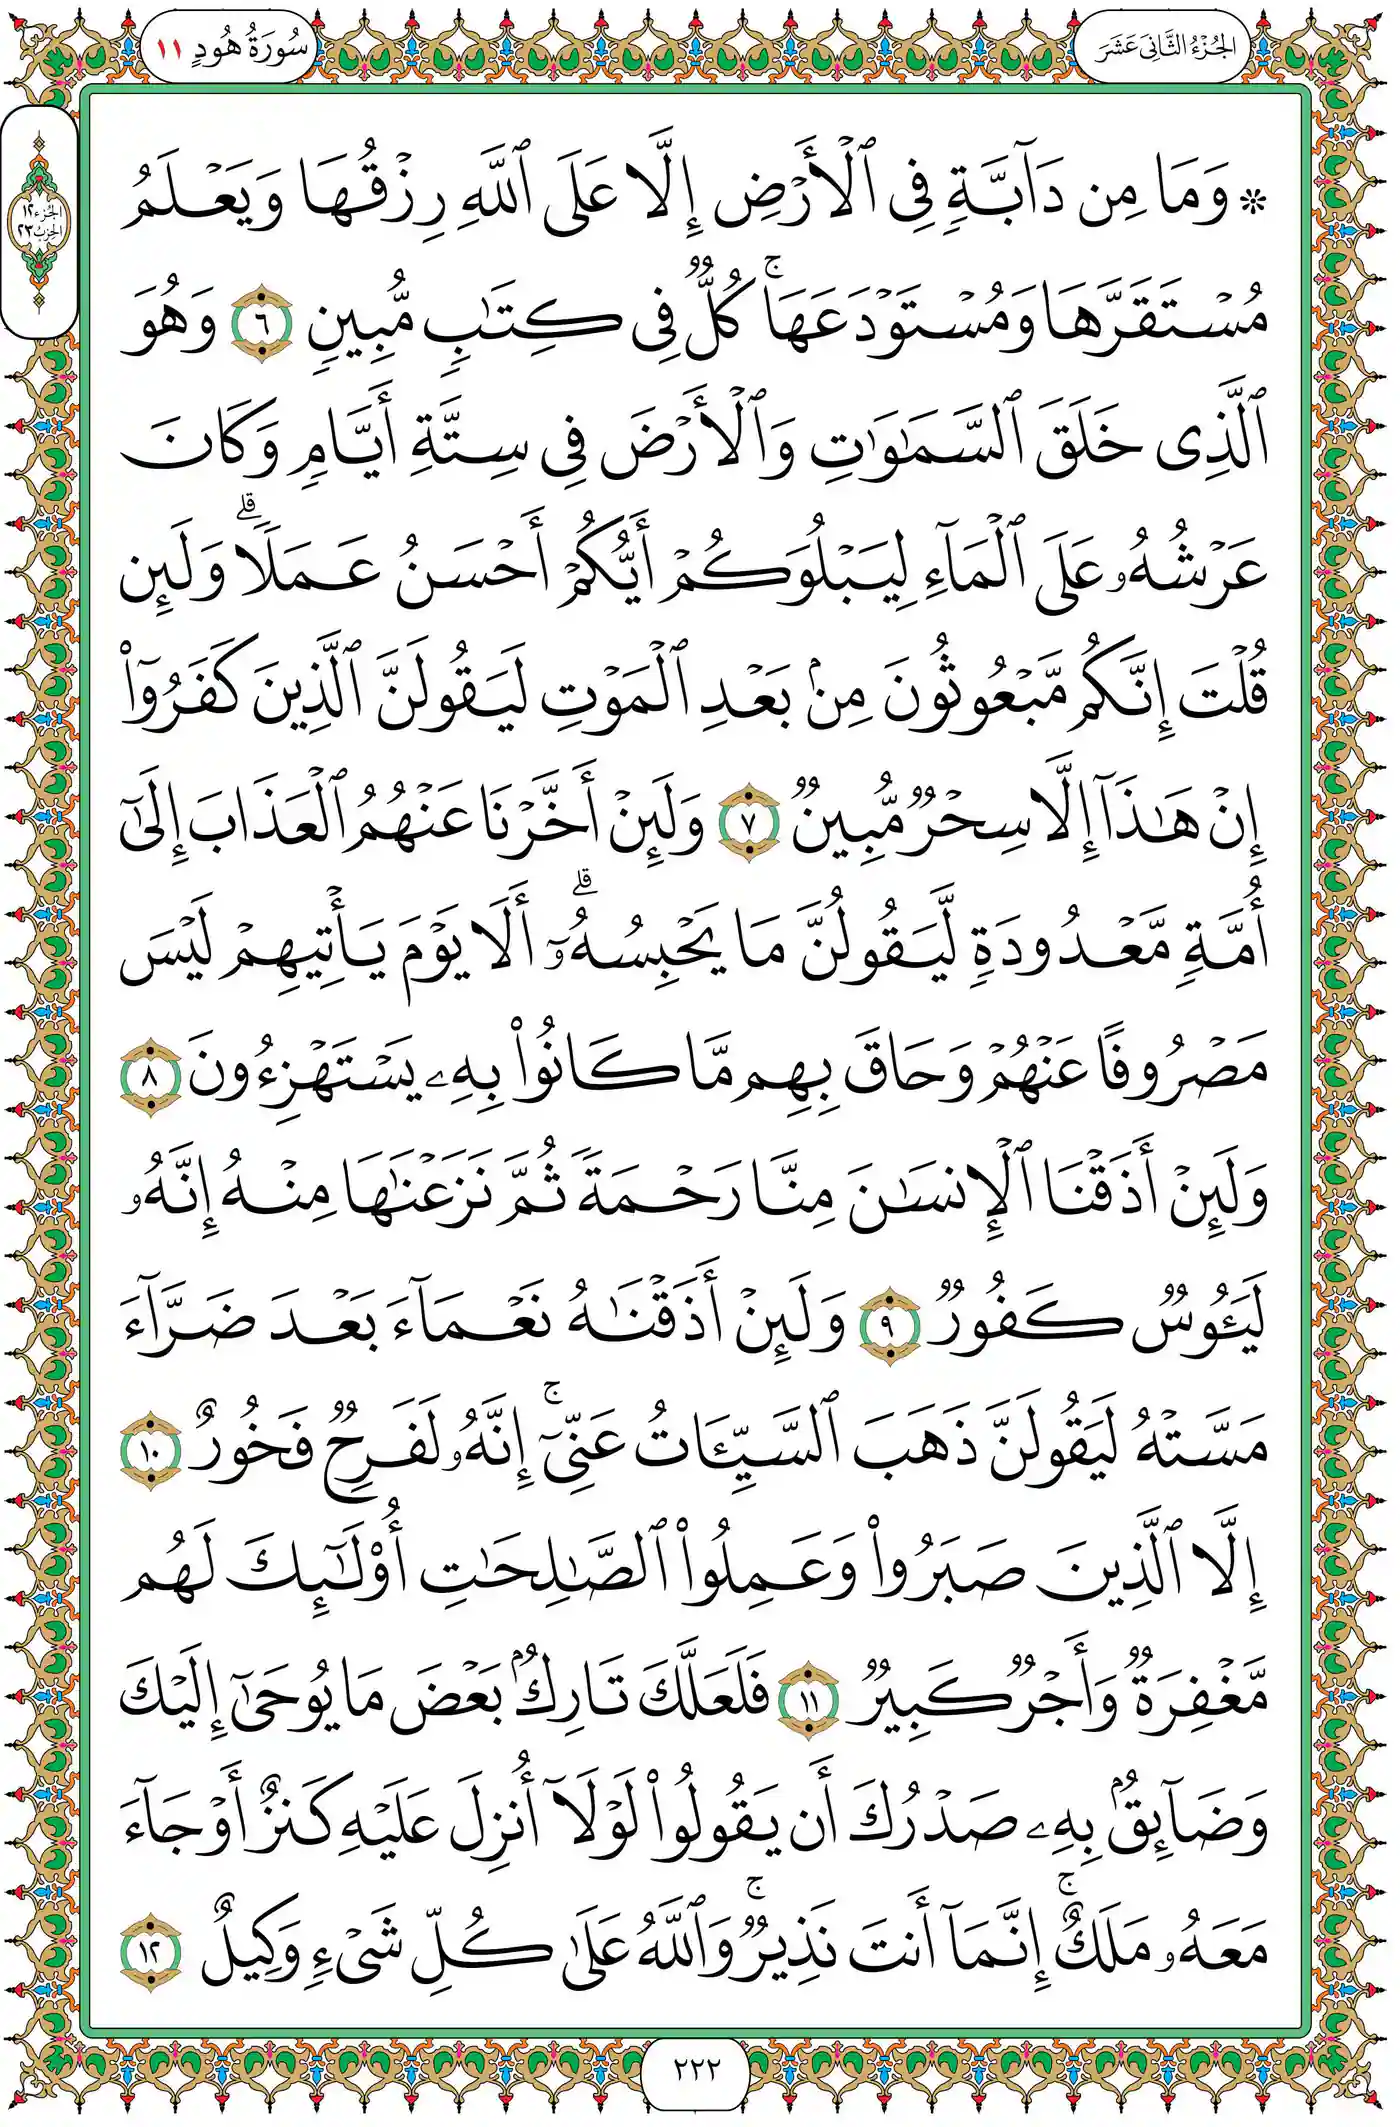 الجُزْءُ الثَّانِيَ عَشَرَ
سُورَةُ هُودٍ ١١
الجزء ١٢
الحزب ٢٣
۞ وَمَا مِن دَآبَّةٍ فِى ٱلْأَرْضِ إِلَّا عَلَى ٱللَّهِ رِزْقُهَا وَيَعْلَمُ
مُسْتَقَرَّهَا وَمُسْتَوْدَعَهَا ۚ كُلٌّ فِى كِتَٰبٍ مُّبِينٍ ٦ وَهُوَ
ٱلَّذِى خَلَقَ ٱلسَّمَٰوَٰتِ وَٱلْأَرْضَ فِى سِتَّةِ أَيَّامٍ وَكَانَ
عَرْشُهُۥ عَلَى ٱلْمَآءِ لِيَبْلُوَكُمْ أَيُّكُمْ أَحْسَنُ عَمَلًا ۗ وَلَئِن
قُلْتَ إِنَّكُم مَّبْعُوثُونَ مِنۢ بَعْدِ ٱلْمَوْتِ لَيَقُولَنَّ ٱلَّذِينَ كَفَرُوٓا۟
إِنْ هَٰذَآ إِلَّا سِحْرٌ مُّبِينٌ ٧ وَلَئِنْ أَخَّرْنَا عَنْهُمُ ٱلْعَذَابَ إِلَىٰٓ
أُمَّةٍ مَّعْدُودَةٍ لَّيَقُولُنَّ مَا يَحْبِسُهُۥٓ ۗ أَلَا يَوْمَ يَأْتِيهِمْ لَيْسَ
مَصْرُوفًا عَنْهُمْ وَحَاقَ بِهِم مَّا كَانُوا۟ بِهِۦ يَسْتَهْزِءُونَ ٨
وَلَئِنْ أَذَقْنَا ٱلْإِنسَٰنَ مِنَّا رَحْمَةً ثُمَّ نَزَعْنَٰهَا مِنْهُ إِنَّهُۥ
لَيَـُٔوسٌ كَفُورٌ ٩ وَلَئِنْ أَذَقْنَٰهُ نَعْمَآءَ بَعْدَ ضَرَّآءَ
مَسَّتْهُ لَيَقُولَنَّ ذَهَبَ ٱلسَّيِّـَٔاتُ عَنِّىٓ ۚ إِنَّهُۥ لَفَرِحٌ فَخُورٌ ١٠
إِلَّا ٱلَّذِينَ صَبَرُوا۟ وَعَمِلُوا۟ ٱلصَّٰلِحَٰتِ أُو۟لَٰٓئِكَ لَهُم
مَّغْفِرَةٌ وَأَجْرٌ كَبِيرٌ ١١ فَلَعَلَّكَ تَارِكٌۢ بَعْضَ مَا يُوحَىٰٓ إِلَيْكَ
وَضَآئِقٌۢ بِهِۦ صَدْرُكَ أَن يَقُولُوا۟ لَوْلَآ أُنزِلَ عَلَيْهِ كَنزٌ أَوْ جَآءَ
مَعَهُۥ مَلَكٌ ۚ إِنَّمَآ أَنتَ نَذِيرٌ ۚ وَٱللَّهُ عَلَىٰ كُلِّ شَىْءٍ وَكِيلٌ ١٢
٢٢٢